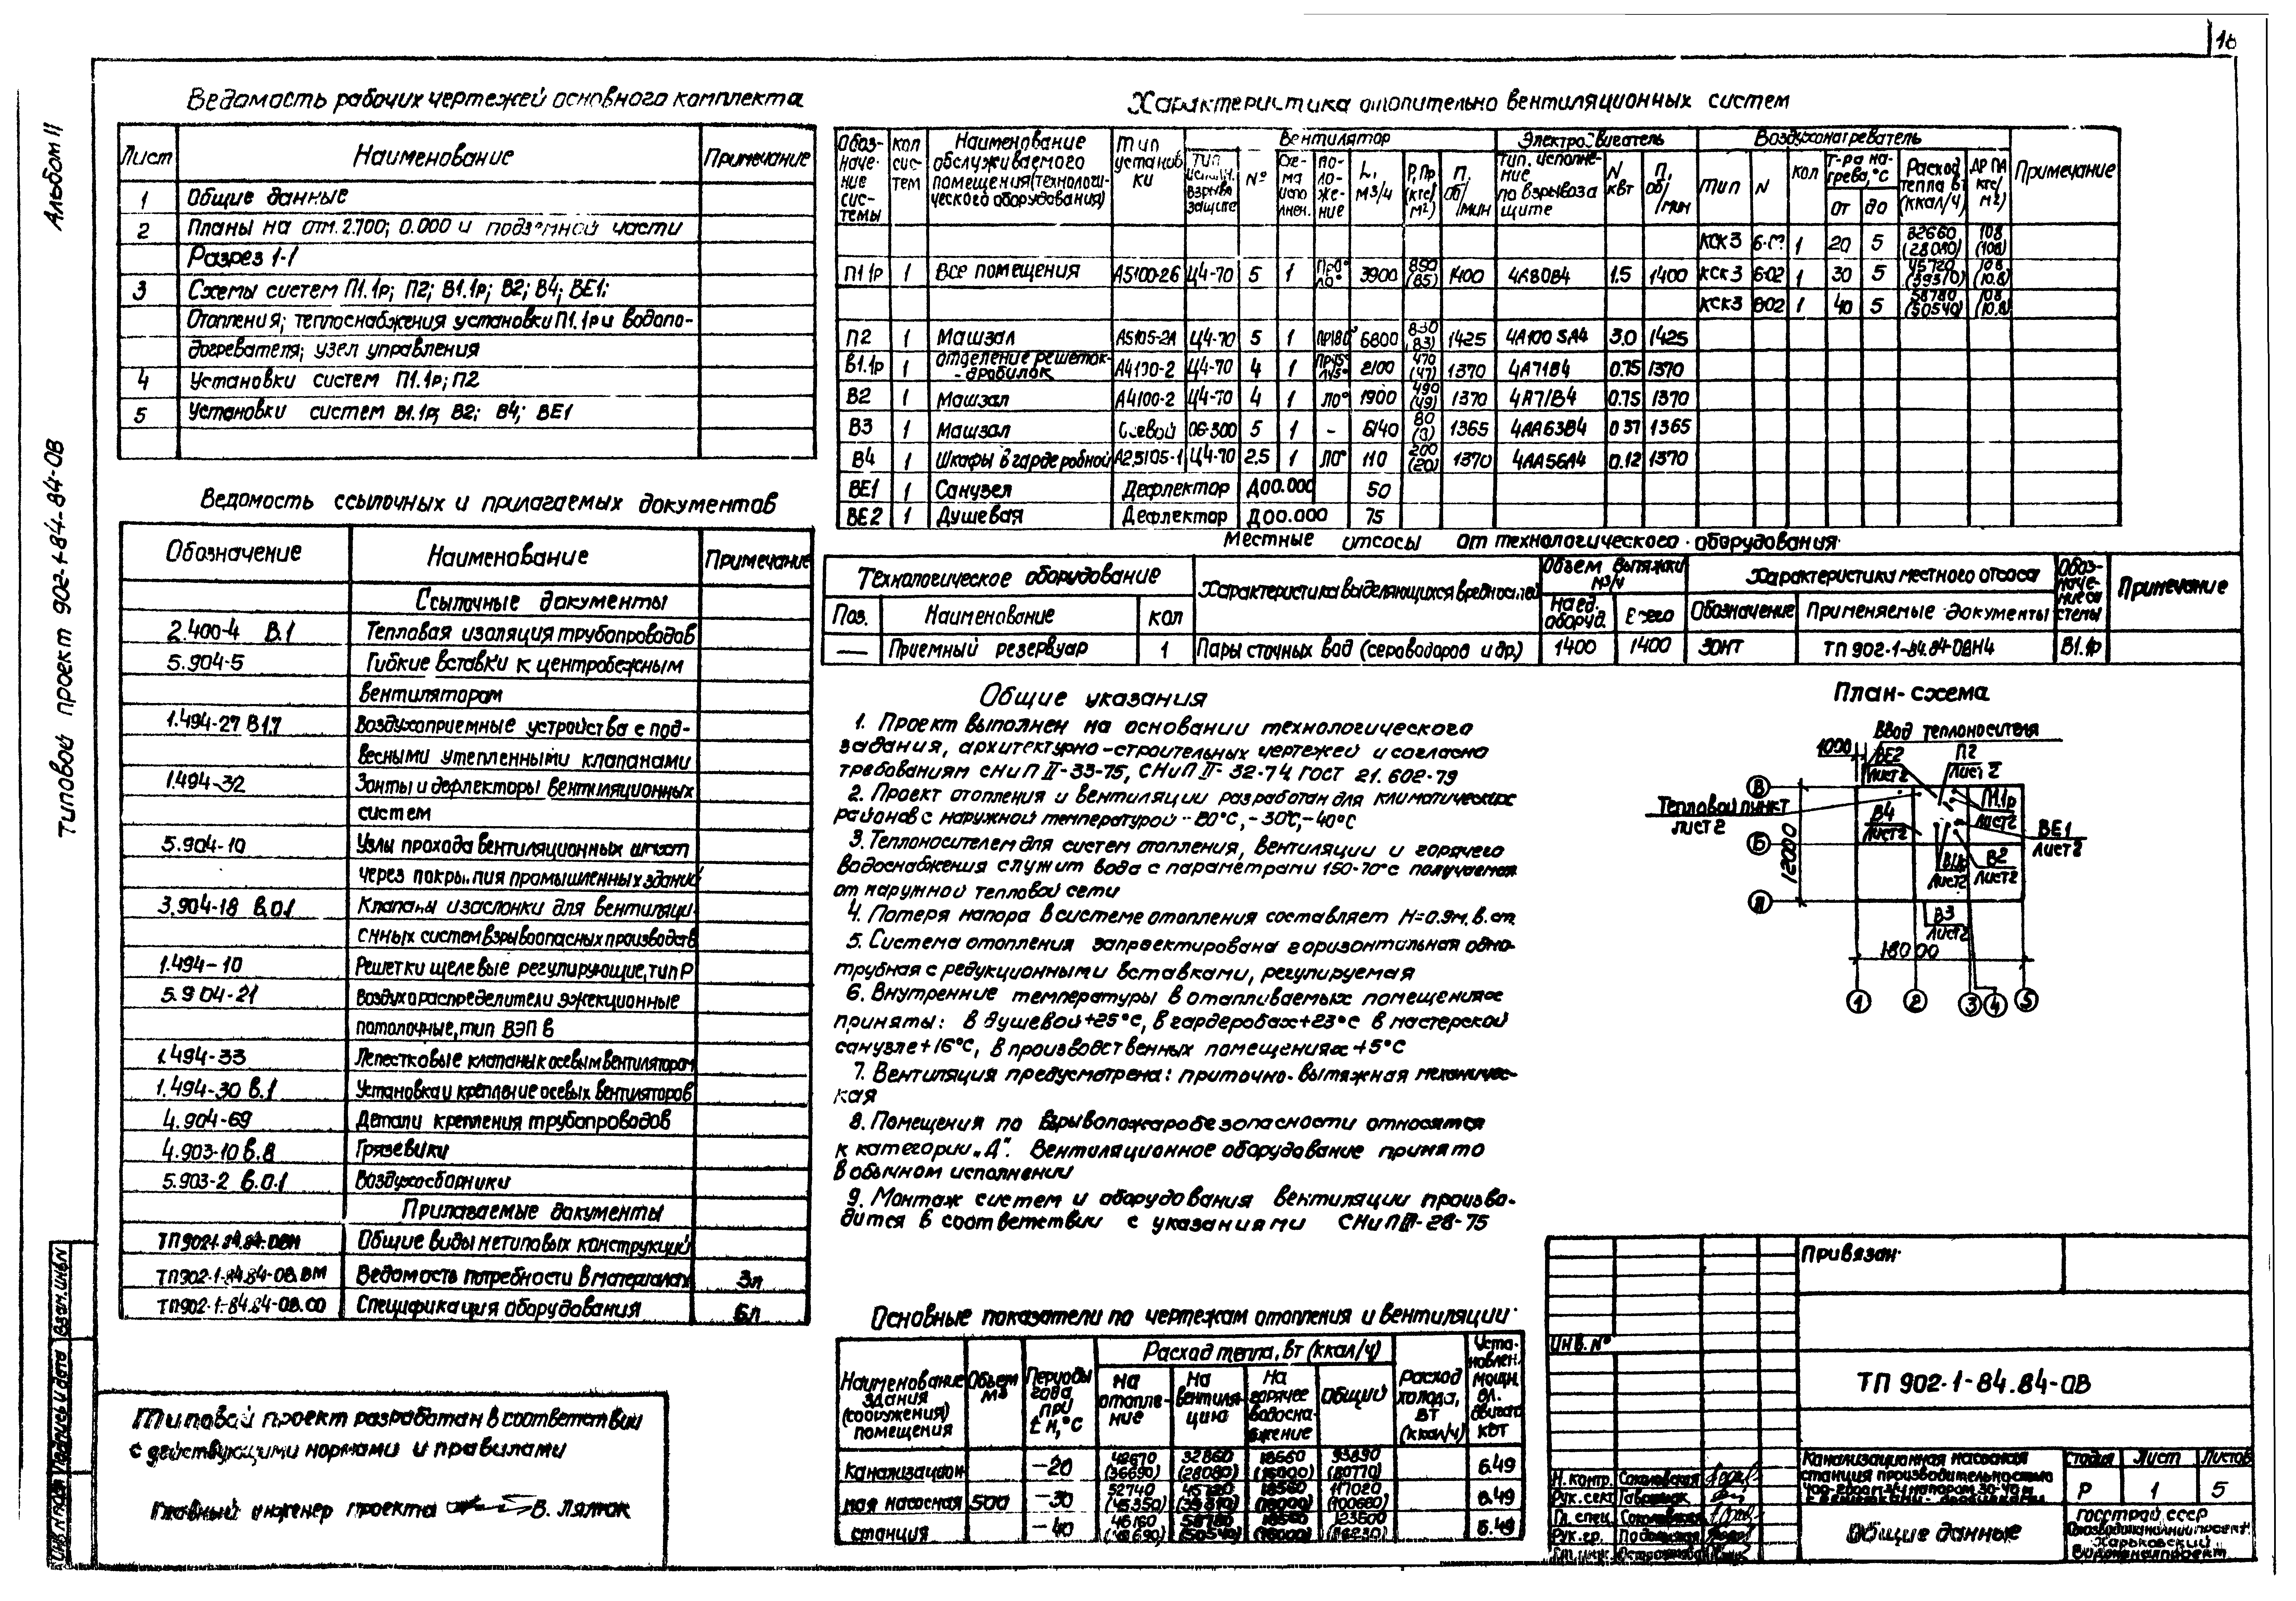 16
Альбом II
Типовой проект 902-1-84.84-ОВ
Ведомость рабочих чертежей основного комплекта
Лист Наименование Примечание
1 Общие данные
2 Планы на отм. 2.700; 0.000 и подземной части
Разрез 1-1
3 Схемы систем П1.1р; П2; В1.1р; В2; В4; ВЕ1;
Отопления; теплоснабжения установки П1.1р и водопо-
догревателя; узел управления
4 Установки систем П1.1р; П2
5 Установки систем В1.1р; В2; В4; ВЕ1
Ведомость ссылочных и прилагаемых документов
Обозначение Наименование Примечание
Ссылочные документы
2.400-4 В.1 Тепловая изоляция трубопроводов
5.904-5 Гибкие вставки к центробежным
вентиляторам
1.494-27 В1.7 Воздухоприемные устройства с под-
весными утепленными клапанами
1.494-32 Зонты и дефлекторы вентиляционных
систем
5.904-10 Узлы прохода вентиляционных шахт
через покрытия промышленных зданий
3.904-18 в.0.1 Клапаны и заслонки для вентиляци-
онных систем взрывоопасных производств
1.494-10 Решетки щелевые регулирующие, тип Р
5.904-21 Воздухораспределители эжекционные
потолочные, тип ВЭП в
1.494-33 Лепестковые клапаны к осевым вентиляторам
1.494-30 в.1 Установка и крепление осевых вентиляторов
4.904-69 Детали крепления трубопроводов
4.903-10 в.8 Грязевики
5.903-2 в.0.1 Воздухосборники
Прилагаемые документы
ТП902-1-84.84-ОВН Общие виды нетиповых конструкций
ТП902-1-84.84-ОВ.ВМ Ведомость потребности в материалах 3л
ТП902-1-84.84-ОВ.СО Спецификация оборудования 6л
Типовой проект разработан в соответствии
с действующими нормами и правилами
Главный инженер проекта В. Ляток
Инв. N подл Подпись и дата Взам. инв. N
Характеристика отопительно вентиляционных систем
Обоз-наче-ние сис-темы кол сис-тем Наименование обслуживаемого помещения (технологи-ческого оборудования) Тип установ ки Вентилятор Электродвигатель Воздухонагреватель Примечание
Тип исполн. взрыва защите № Схе-ма испо лнен. По-ло-же-ние L, м3/ч Р, Пр (кгс/м²) п. об/мин Тип. исполне-ние по взрывоза щите N квт п, об/мин Тип N кол Т-ра на-грева, °С Расход тепла вт (ккал/ч) ДР ПА кгс/м²)
От до
КСК3 6-02 1 20 5 32660 (28080) 108 (108)
П1.1р 1 Все помещения А5100-2б Ц4-70 5 1 Пр0° Л0° 3900 850 (85) 1400 4А80В4 1.5 1400 КСК3 6-02 1 30 5 45720 (39310) 108 (10.8)
КСК3 802 1 40 5 58780 (50540) 108 (10.8)
П2 1 Машзал А5105-2А Ц4-70 5 1 Пр180° 6800 830 (83) 1425 4А100 SA4 3.0 1425
В1.1р 1 отделение решеток-дробилок А4100-2 Ц4-70 4 1 Пр45° Л45° 2100 470 (47) 1370 4А71В4 0.75 1370
В2 1 Машзал А4100-2 Ц4-70 4 1 Л0° 1900 490 (49) 1370 4А71В4 0.75 1370
В3 1 Машзал Осевой 06-300 5 1 - 6140 80 1365 4АА63В4 0.37 1365
В4 1 Шкафы в гардеробной А2,5105-1 Ц4-70 2.5 1 Л0° 110 200 (20) 1370 4АА56А4 0.12 1370
ВЕ1 1 Санузел Дефлектор Д00.000 50
ВЕ2 1 Душевая Дефлектор Д00.000 75
Местные отсосы от технологического оборудования
Технологическое оборудование Характеристика выделяющихся вредностей Объем вытяжки м3/ч Характеристики местного отсоса Обоз-наче-ние си стемы Примечание
Поз. Наименование кол На ед. оборуд. Всего Обозначение Применяемые документы
— Приемный резервуар 1 Пары сточных вод (сероводород и др.) 1400 1400 зонт ТП 902-1-84.84-ОВН4 В1.1р
Общие указания
1. Проект выполнен на основании технологического
задания, архитектурно-строительных чертежей и согласно
требованиям СНиП II-33-75, СНиП II-32-74 ГОСТ 21.602-79
2. Проект отопления и вентиляции разработан для климатических
районов с наружной температурой -20°С, -30°С, -40°С
3. Теплоносителем для систем отопления, вентиляции и горячего
водоснабжения служит вода с параметрами 150-70°С получаемая
от наружной тепловой сети
4. Потеря напора в системе отопления составляет Н=0.9м.в.ст.
5. Система отопления запроектирована горизонтальная одно-
трубная с редукционными вставками, регулируемая
6. Внутренние температуры в отапливаемых помещениях
приняты: в душевой +25°С, в гардеробах +23°С в мастерской
санузле +16°С, в производственных помещениях +5°С
7. Вентиляция предусмотрена: приточно-вытяжная механичес-
кая
8. Помещения по взрывопожаробезопасности относятся
к категории „Д". Вентиляционное оборудование принято
в обычном исполнении
9. Монтаж систем и оборудования вентиляции произво-
дится в соответствии с указаниями СНиП III-28-75
План-схема
Ввод теплоносителя
1000 ВЕ2 П2
Лист 2 Лист 2
В
Тепловой пункт
лист 2
В4 Лист 2
П1.1р Лист 2
ВЕ1
Лист 2
Б
12000
В1.1р В2
Лист2 Лист2
В3
Лист 2
18000
1 2 3 4 5
Основные показатели по чертежам отопления и вентиляции
Наименование здания (сооружения) помещения Объем м³ Периоды года при tн, °С Расход тепла, вт (ккал/ч) Расход холода, вт (ккал/ч) Уста-новлен. мощн. эл. двигат. квт
на отопле-ние На вентиля-цию На горячее водосна-бжение Общий
Канализацион -20 42670 (36690) 32660 (28080) 18560 (16000) 93890 (80770) 6.49
ная насосная 500 -30 52740 (45350) 45720 (39310) 18560 (16000) 117020 (100680) 6.49
станция -40 58780 (50540) 18560 (16000) 123500 6.49
Привязан
Инв. №
ТП 902-1-84.84-ОВ
Канализационная насосная
станция производительностью
400-2000м3/ч напором 30-40м
с решетками-дробилками
Стадия Лист Листов
Р 1 5
Общие данные
Госстрой СССР
Союзводоканалниипроект
Харьковский
Водоканалпроект
Н. контр. Соколовская
Рук. сект.
Гл. спец. Соколовская
Рук. гр. Подольская